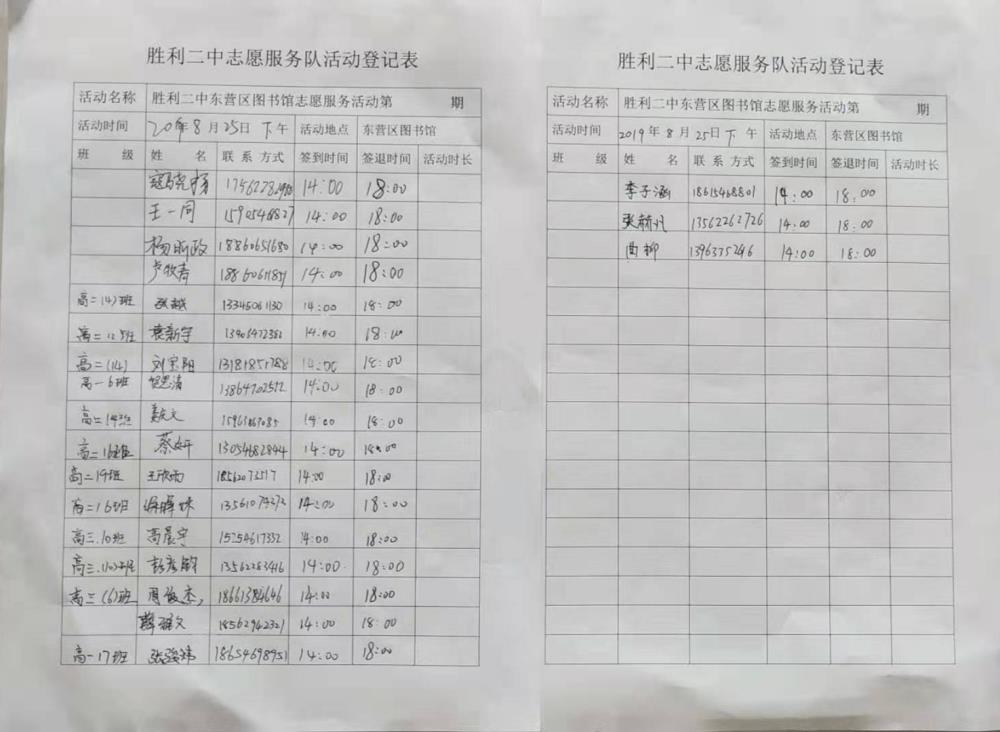 胜利二中志愿服务队活动登记表
活动名称 胜利二中东营区图书馆志愿服务活动第 期
活动时间 20 年 8 月 25 日 下 午 活动地点 东营区图书馆
班 级 姓 名 联系方式 签到时间 签退时间 活动时长
14:00 18:00
王一同 14:00 18:00
杨 政 18860651680 14:00 18:00
卢牧春 14:00 18:00
高二(4)班 张越 13345061130 14:00 18:00
高二12班 袁新宇 14:00 18:00
高二(14) 刘宝阳 13181851788 14:00 18:00
高一6班 13864702512 14:00 18:00
高二14班 14:00 18:00
高二16班 蔡妍 13054682844 14:00 18:00
高二19班 王欣雨 14:00 18:00
高二16班 14:00 18:00
高三.10班 高晨宇 15254617332 14:00 18:00
高三.(10)班 13562283416 14:00 18:00
高三(6)班 周俊杰 18661384646 14:00 18:00
18562942321 14:00 18:00
高一17班 18654698951 14:00 18:00
胜利二中志愿服务队活动登记表
活动名称 胜利二中东营区图书馆志愿服务活动第 期
活动时间 2019 年 8 月 25 日 下 午 活动地点 东营区图书馆
班 级 姓 名 联系方式 签到时间 签退时间 活动时长
李子涵 18615468801 14:00 18:00
张 凡 13562262726 14:00 18:00
曲柳 1396375246 14:00 18:00